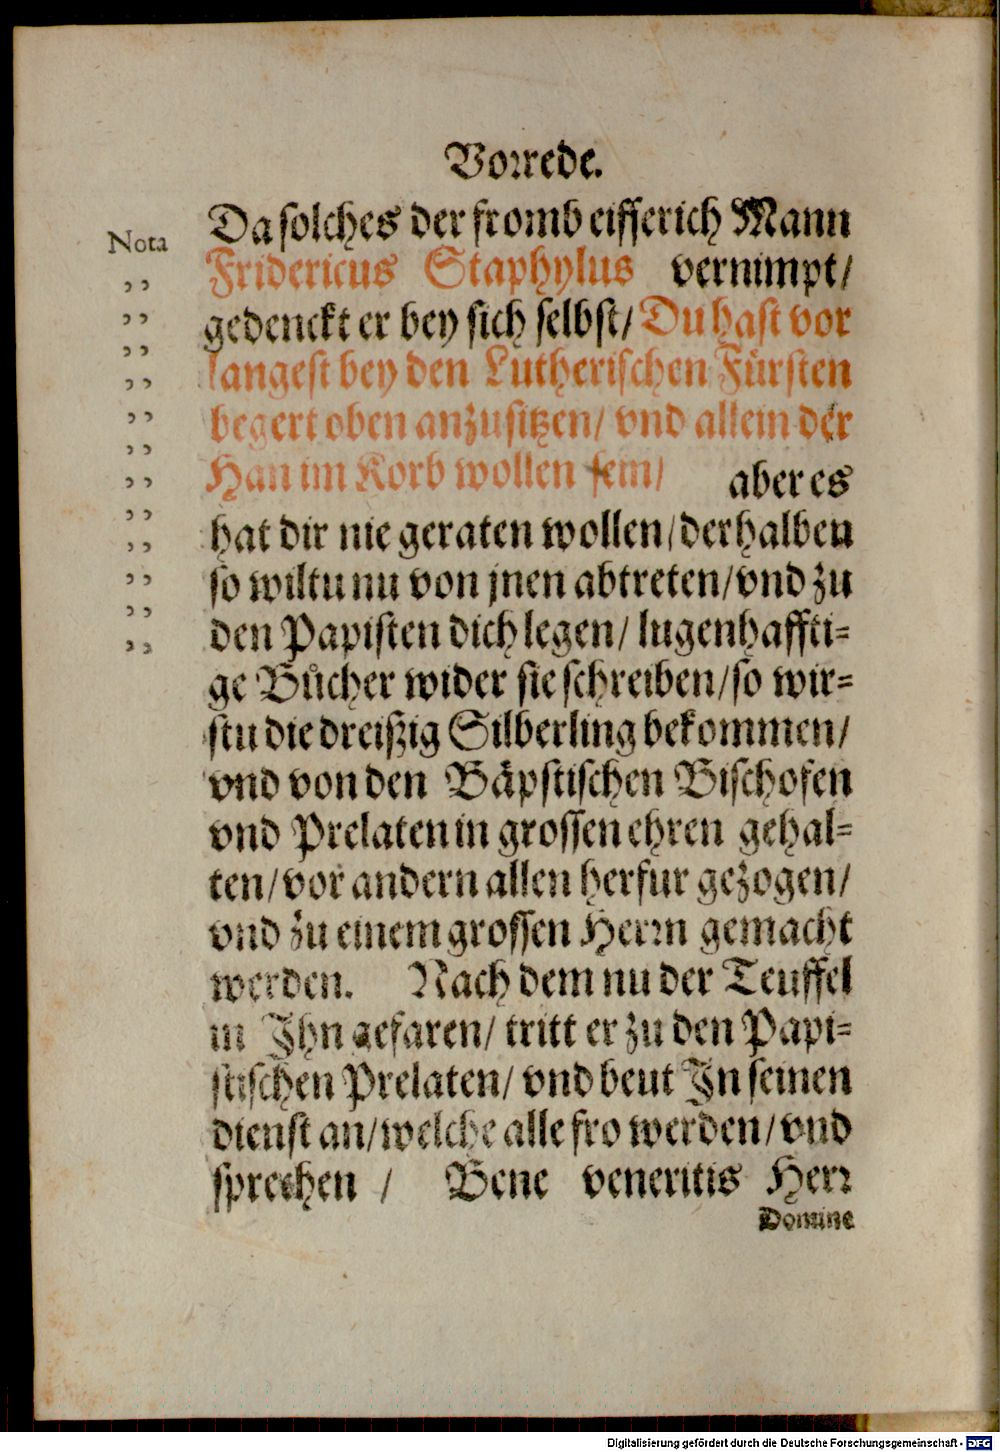 Vorrede.
Nota
Da solches der fromb eifferich Mann
Fridericus Staphylus vernimpt/
gedenckt er bey sich selbst/ Du hast vor
langest bey den Lutherischen Fürsten
begert oben anzusitzen/ vnd allein der
Han im Korb wollen sein/ aber es
hat dir nie geraten wollen/ derhalben
so wiltu nu von jnen abtreten/ vnd zu
den Papisten dich legen/ lugenhaffti-
ge Bücher wider sie schreiben/ so wir-
stu die dreißig Silberling bekommen/
vnd von den Bäpstischen Bischofen
vnd Prelaten in grossen ehren gehal-
ten/ vor andern allen herfur gezogen/
vnd zu einem grossen Herrn gemacht
werden. Nach dem nu der Teuffel
in Ihn gefaren/ tritt er zu den Papi-
stischen Prelaten/ vnd beut In seinen
dienst an/ welche alle fro werden/ vnd
sprechen / Bene veneritis Herr
Domine
Digitalisierung gefördert durch die Deutsche Forschungsgemeinschaft - DFG